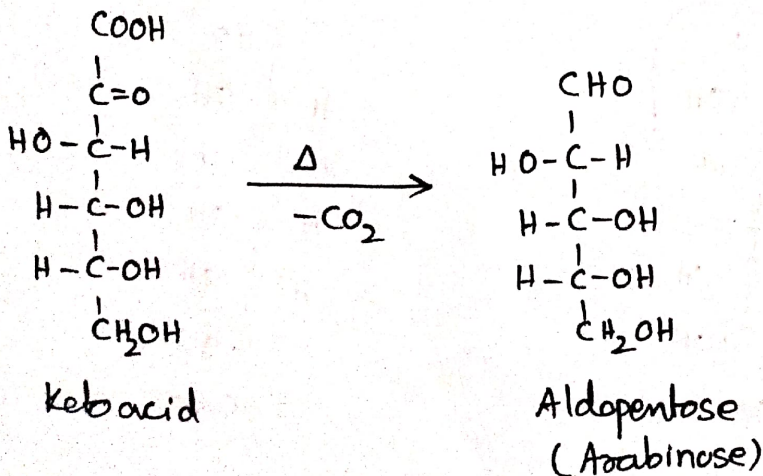 COOH
C=O
HO-C-H
H-C-OH
H-C-OH
CH₂OH
Keto acid
Δ
-CO₂
CHO
HO-C-H
H-C-OH
H-C-OH
CH₂OH
Aldopentose
(Arabinose)